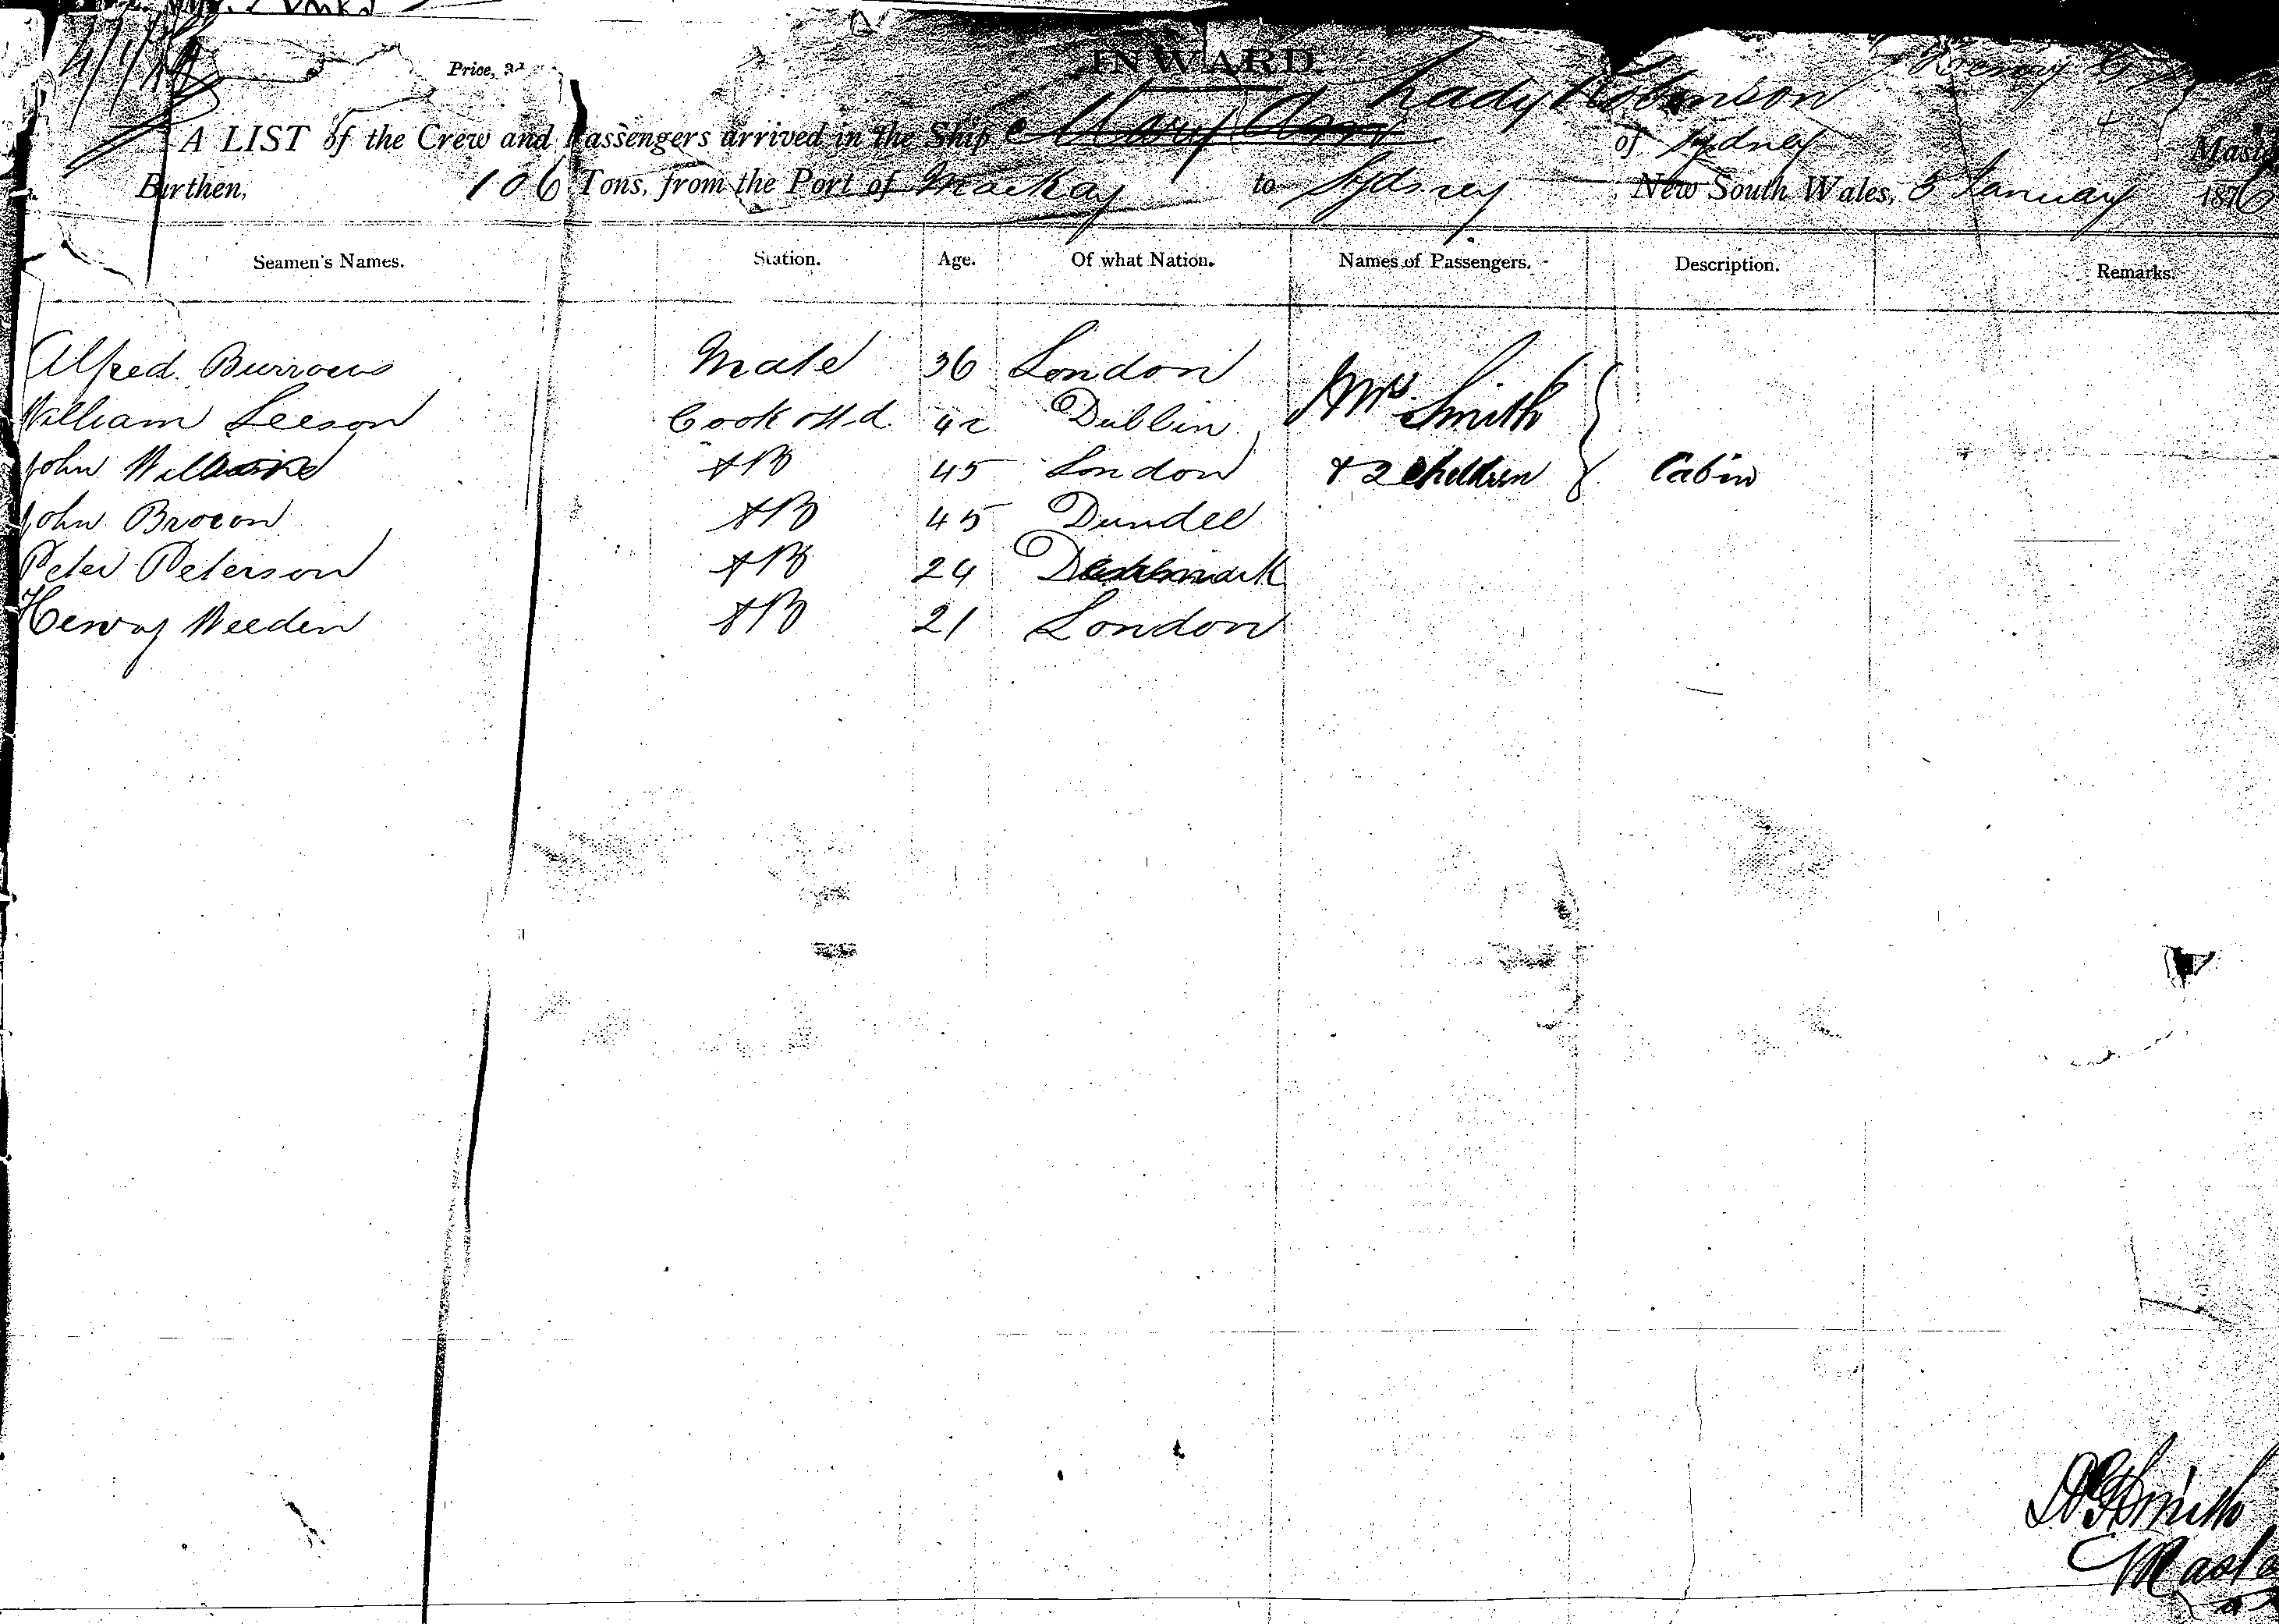 4/1/76
Price,
INWARD.
Lady Robinson
A LIST of the Crew and Passengers arrived in the Ship Mary Ann of Sydney Master
Burthen, 106 Tons, from the Port of Mackay to Sydney New South Wales, 5 January 1876
Seamen's Names. Station. Age. Of what Nation. Names of Passengers. Description. Remarks.
Alfred Burrows Mate 36 London Mrs Smith
William Leeson Cook 42 Dublin
John AB 45 London & 2 Children Cabin
John Brown AB 45 Dundee
Peter Peterson AB 24 Denmark
Henry Weeden AB 21 London
Smith
Master